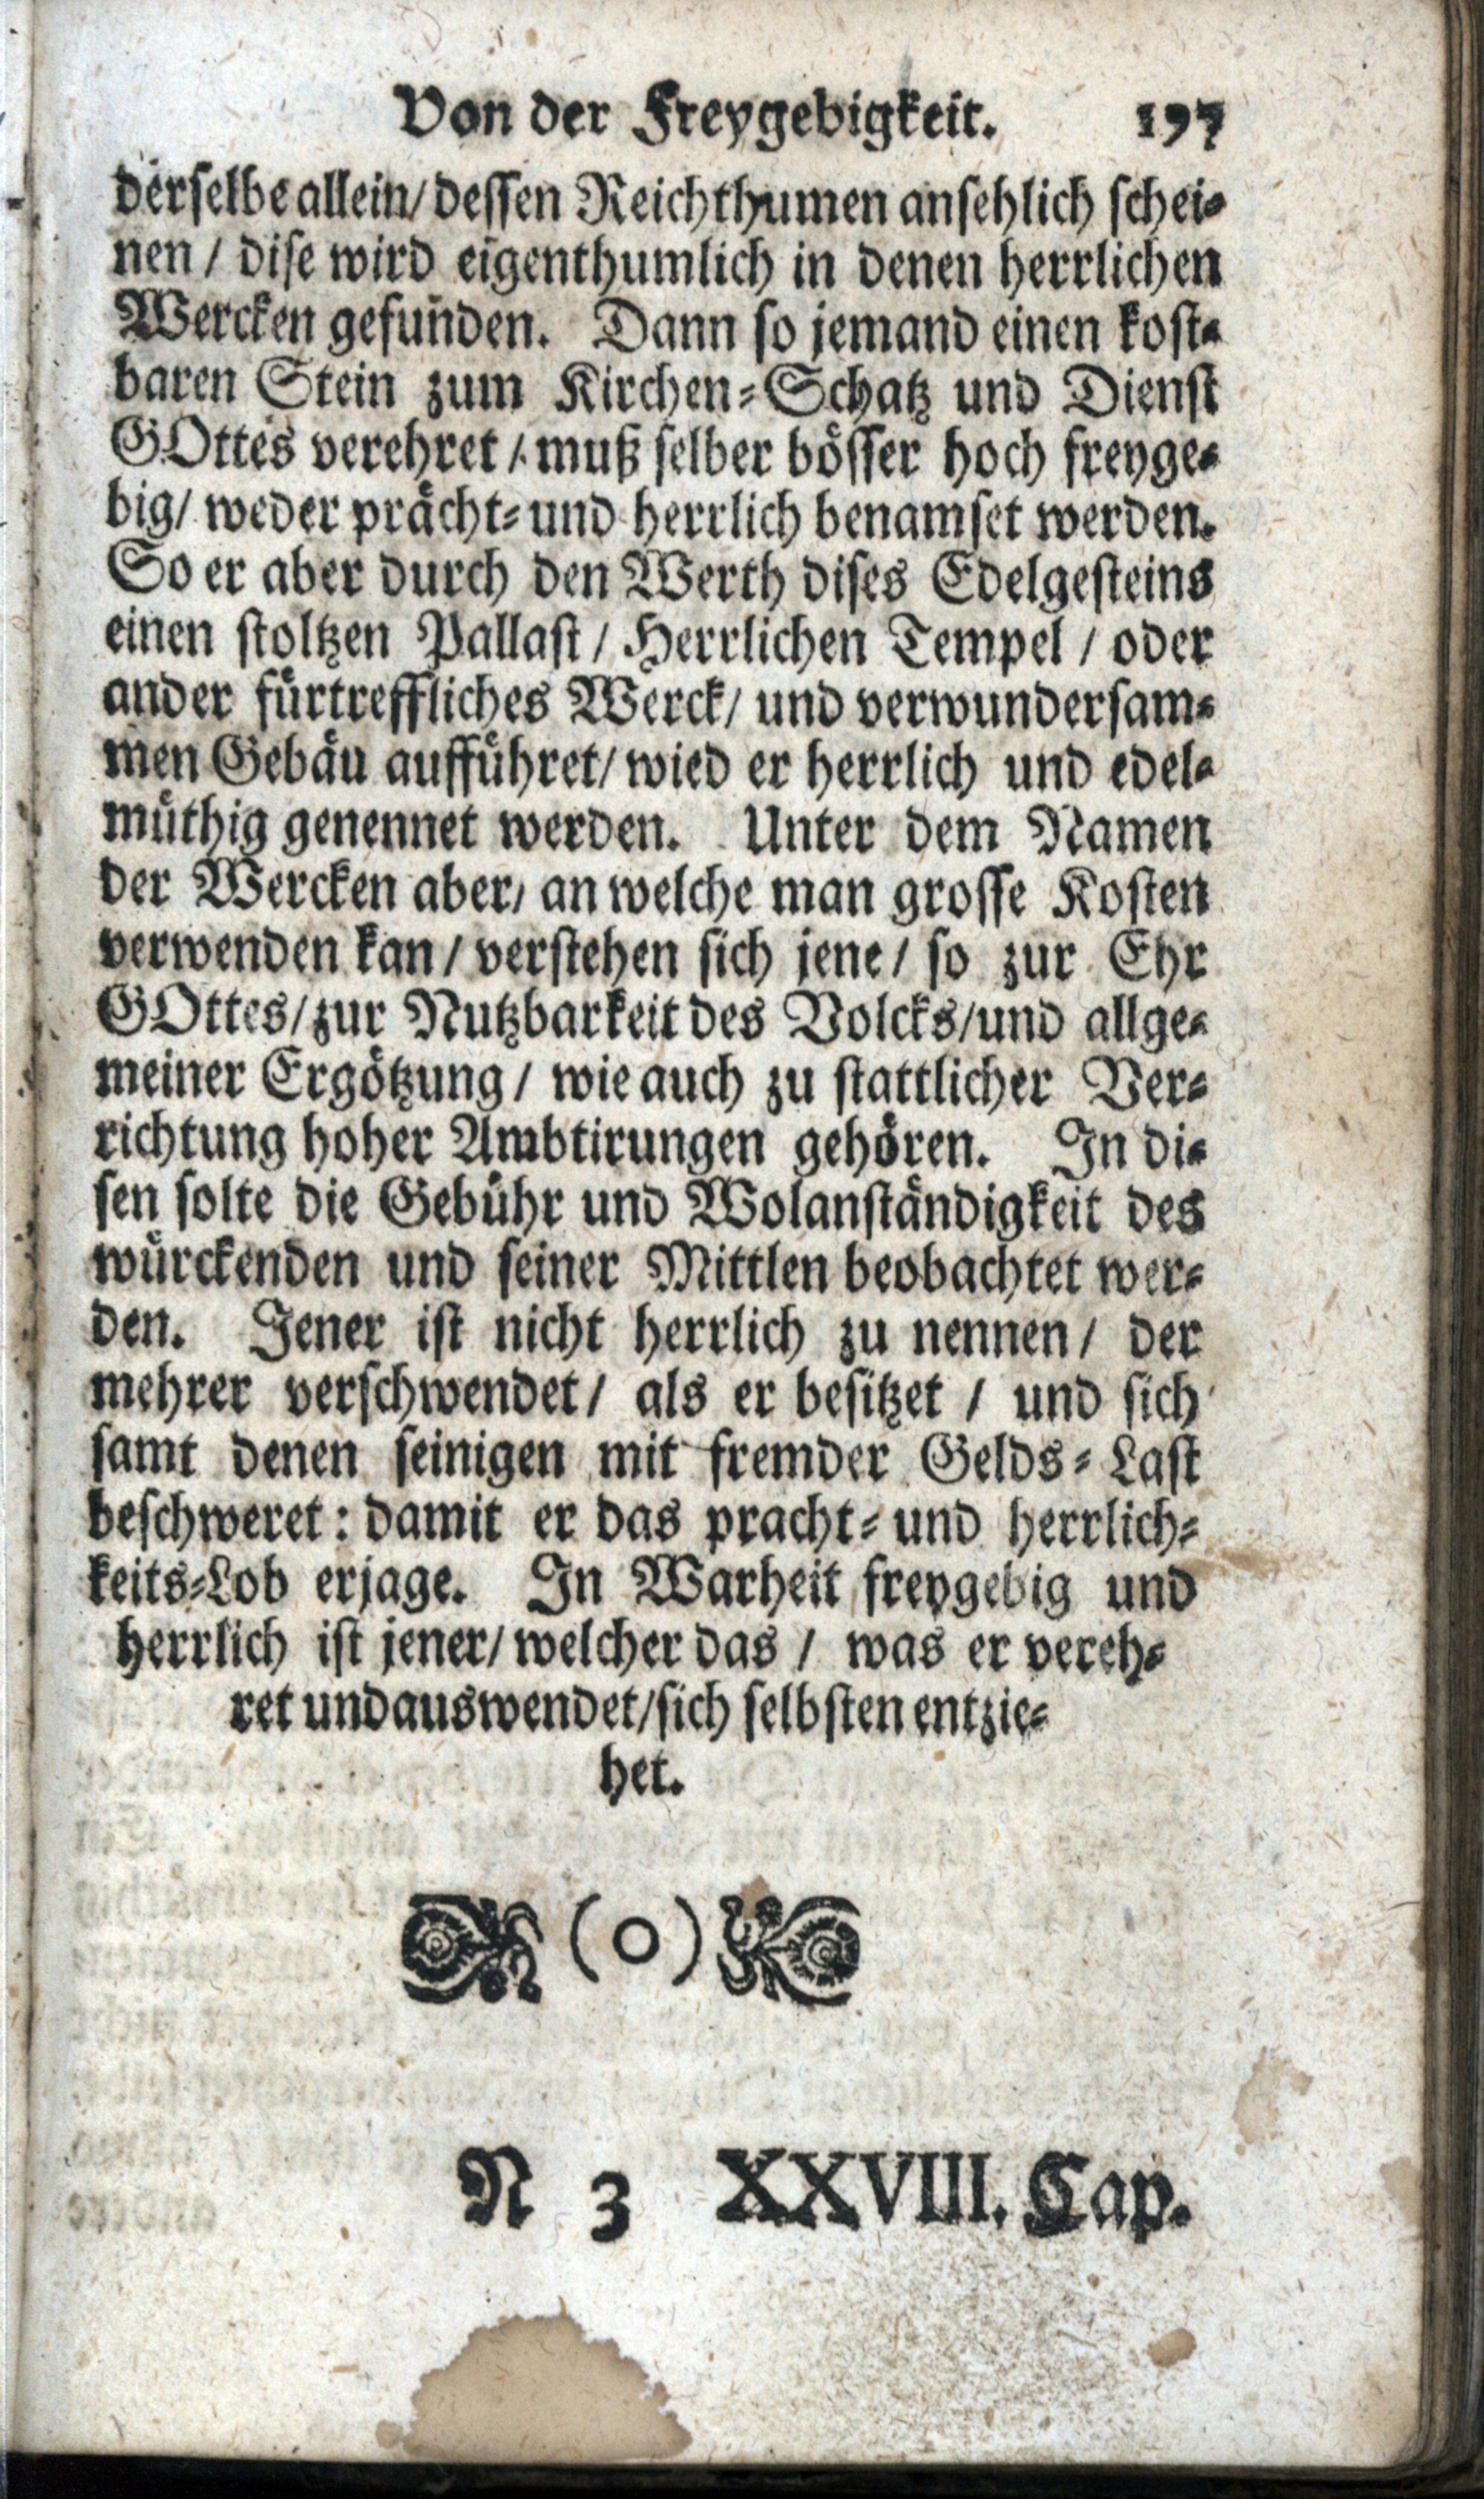 Von der Freygebigkeit. 197
derselbe allein/ dessen Reichthumen ansehlich schei⸗
nen / dise wird eigenthumlich in denen herrlichen
Wercken gefunden. Dann so jemand einen kost⸗
baren Stein zum Kirchen⸗Schatz und Dienst
GOttes verehret / muß selber bösser hoch freyge⸗
big/ weder prächt⸗ und herrlich benamset werden.
So er aber durch den Werth dises Edelgesteins
einen stoltzen Pallast / Herrlichen Tempel / oder
ander fürtreffliches Werck/ und verwundersam⸗
men Gebäu aufführet/ wied er herrlich und edel⸗
müthig genennet werden. Unter dem Namen
der Wercken aber/ an welche man grosse Kosten
verwenden kan / verstehen sich jene / so zur Ehr
GOttes/ zur Nutzbarkeit des Volcks/und allge⸗
meiner Ergötzung / wie auch zu stattlicher Ver⸗
richtung hoher Ambtirungen gehören. In di⸗
sen solte die Gebühr und Wolanständigkeit des
würckenden und seiner Mittlen beobachtet wer⸗
den. Jener ist nicht herrlich zu nennen / der
mehrer verschwendet / als er besitzet / und sich
samt denen seinigen mit fremder Gelds⸗Last
beschweret: damit er das pracht⸗ und herrlich⸗
keits⸗Lob erjage. In Warheit freygebig und
herrlich ist jener/ welcher das / was er vereh⸗
ret und auswendet/sich selbsten entzie⸗
het.
(o)
N 3 XXVIII. Cap.